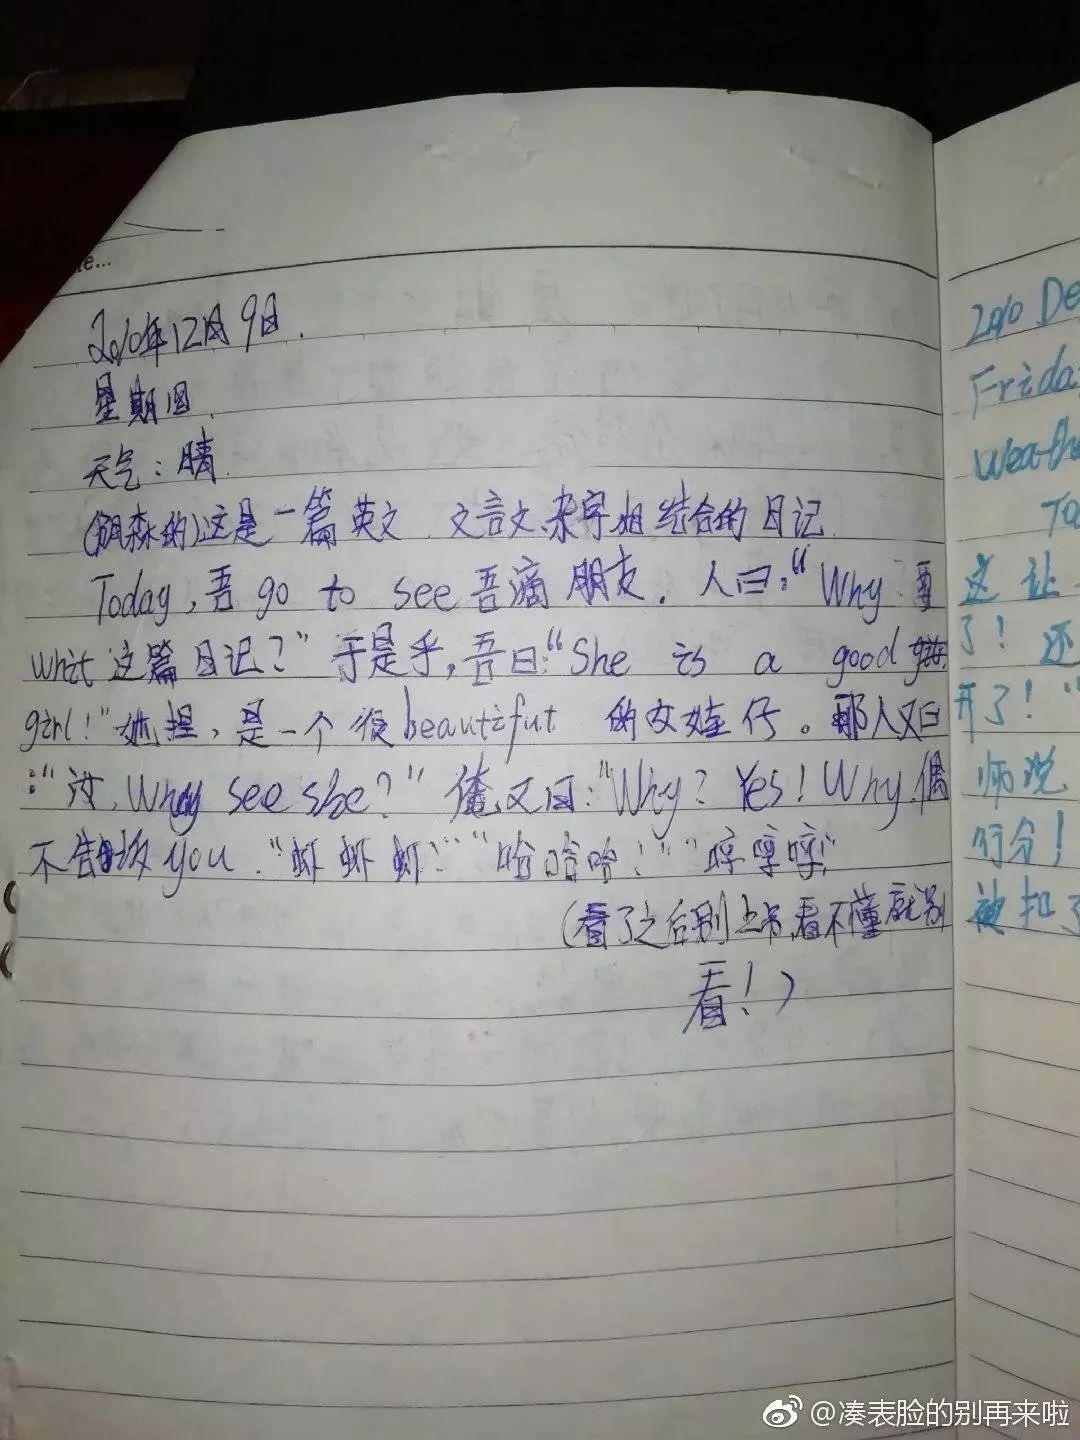 2010年12月9日.
星期四.
天气:晴.
这是一篇英文.文言文.杂字姐结合的日记.
Today,吾go to see吾滴朋友.人曰:“Why?要
whit这篇日记?”于是乎,吾曰:“She is a good
girl!”她捏,是一个很beautifut的女娃仔。那人又曰
:“汝,Why see she?”俺又曰:“Why? Yes! Why.偶
不告诉you.“虾虾虾!”“哈哈哈!”“哼哼哼!”
(看了之后别上吊,看不懂就别
看!)
2010 De
Frida
Weathe
To
这让
了!还
开了!“
师说
行分!
被扣了
@凑表脸的别再来啦